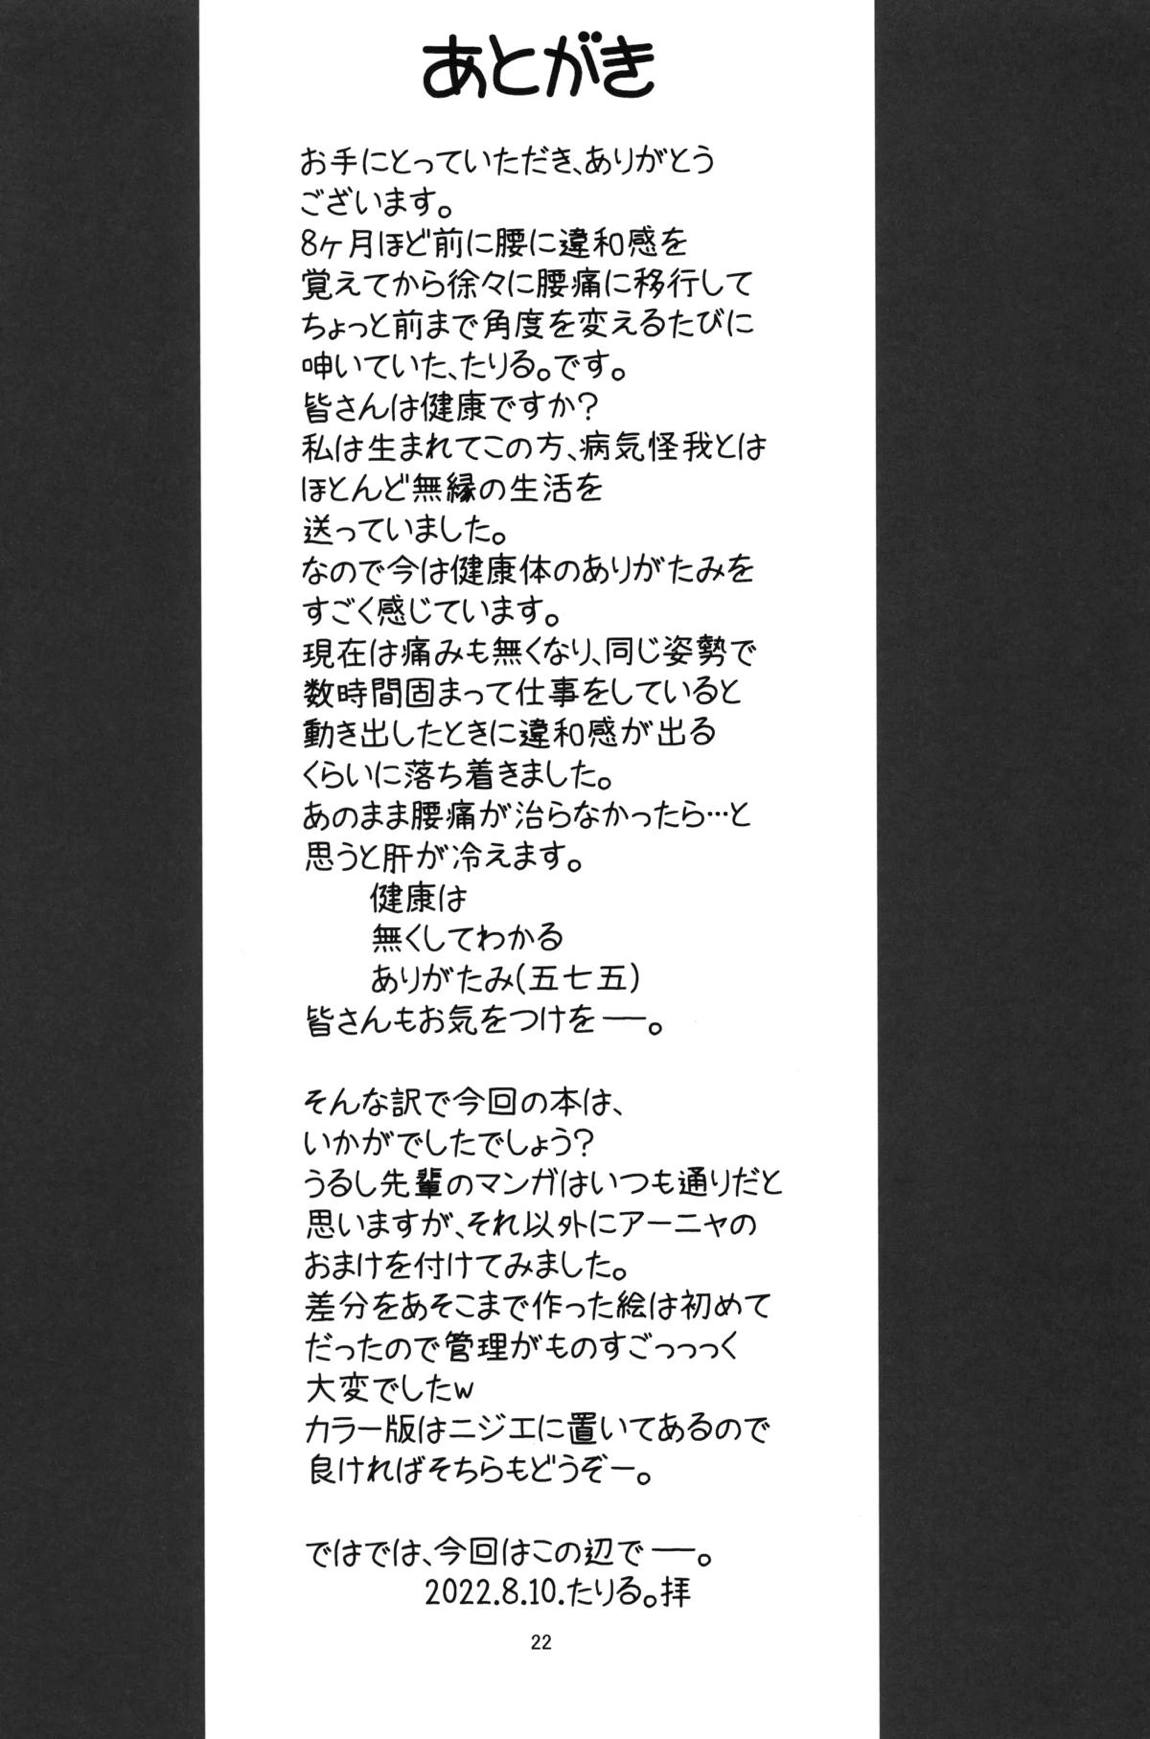 あとがき
お手にとっていただき、ありがとう
ございます。
8ヶ月ほど前に腰に違和感を
覚えてから徐々に腰痛に移行して
ちょっと前まで角度を変えるたびに
呻いていた、たりる。です。
皆さんは健康ですか?
私は生まれてこの方、病気怪我とは
ほとんど無縁の生活を
送っていました。
なので今は健康体のありがたみを
すごく感じています。
現在は痛みも無くなり、同じ姿勢で
数時間固まって仕事をしていると
動き出したときに違和感が出る
くらいに落ち着きました。
あのまま腰痛が治らなかったら…と
思うと肝が冷えます。
健康は
無くしてわかる
ありがたみ(五七五)
皆さんもお気をつけを―。
そんな訳で今回の本は、
いかがでしたでしょう?
うるし先輩のマンガはいつも通りだと
思いますが、それ以外にアーニャの
おまけを付けてみました。
差分をあそこまで作った絵は初めて
だったので管理がものすごっっっく
大変でしたw
カラー版はニジエに置いてあるので
良ければそちらもどうぞー。
ではでは、今回はこの辺で―。
2022.8.10.たりる。拝
22